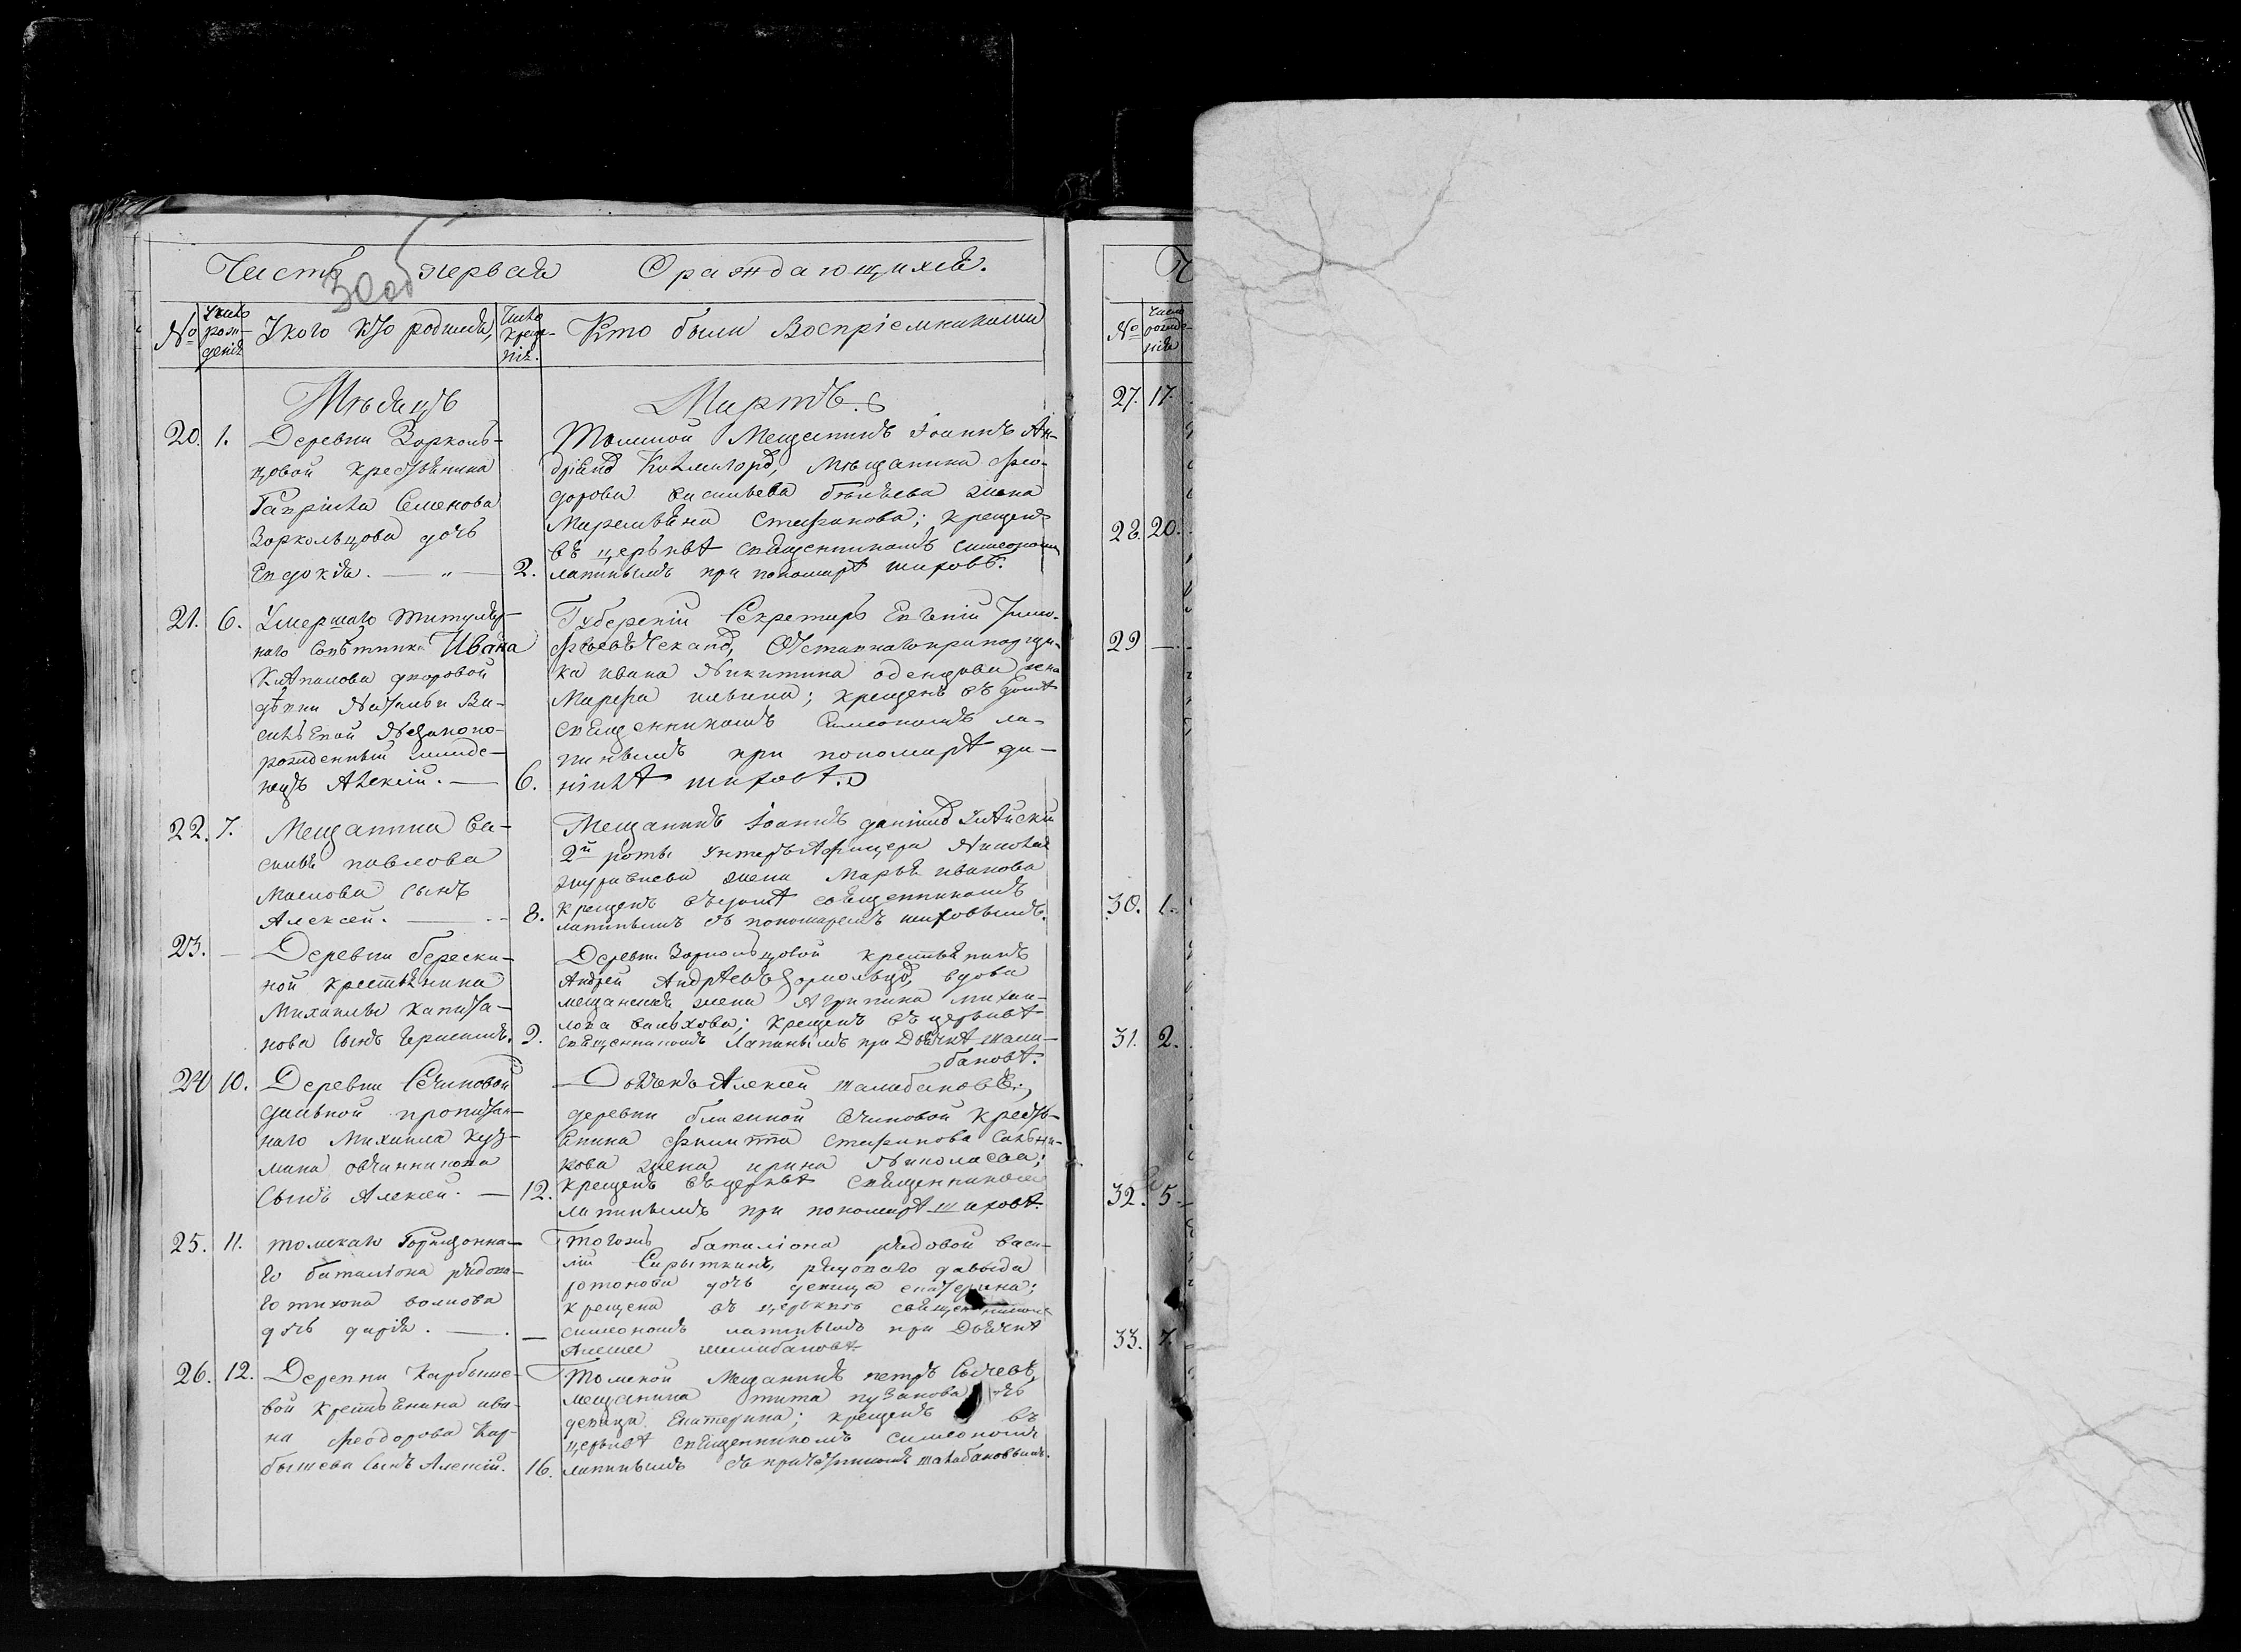 Часть первая О раждающихся.
30 об
№
Число рож-
денiя
У кого кто родился,
Число
креще-
нiя.
Кто были Воспрiемниками
Мѣсяцъ Мартъ.
20. 1. Деревни Зорколь-
цовой крестьянина
Гаврiила Семенова
Заркольцова дочь
Евдокiя. — „ — 2.
Томской Мещанинъ Iоаннъ Ан-
мѣщанина Фео-
дорова Васильева жена
Стефанова; крещена
въ церьквѣ священникомъ Симеономъ
лапинымъ при пономарѣ шиховѣ.
21. 6. Умершаго титуляр-
наго Совѣтника Ивана
дворовой
дѣвки Натальи Ва-
сильевой Незаконо-
рожденный младе-
нецъ Алексiй. — 6.
Секретарь Евгенiй Тимо-
фѣевъ
ка ивана Никитина жена
Марфа ильина; крещенъ въ домѣ
священникомъ Симеономъ ла-
пинымъ при пономарѣ да-
нiилѣ шиховѣ.
22. 7. Мещанина Ва-
силья павлова
Маслова сынъ
Алексей. — 8.
Мещанинъ Iоаннъ
2й роты унтеръ Афицера Николая
жена Марья иванова
крещенъ въ домѣ священникомъ
лапинымъ съ пономаремъ шиховымъ.
23. — Деревни береski-
ной крестьянина
Михаилы капита-
нова сынъ Герасимъ. 9.
Деревни Зоркольцовой крестьянинъ
Андрей Андрѣевъ Заркольцовъ, вдова
мещанская жена Агрипина михаи-
лова крещенъ въ церьквѣ
священникомъ Лапинымъ при Дьячкѣ шала-
бановѣ.
24 10. Деревни
пропитан-
наго Михаила куз-
мина овчинникова
сынъ Алексей. — 12.
Дьячекъ Алексей шалабановъ;
деревни кресть-
янина Филиппа стефанова
кова жена ирина Николаева;
крещенъ въ церьквѣ священникомъ
лапинымъ при пономарѣ шиховѣ.
25. 11. томскаго Гарнизонна-
го баталiона рядова-
го тихона волкова
дочь дарiя. — . —
тогожъ баталiона рядовой васи-
лiй рядоваго давыда
дочь девица екатерина;
крещена въ церьквѣ священникомъ
симеономъ лапинымъ при Дьячкѣ
Алексее шалабановѣ
26. 12. Деревни Карбыше-
вой крестьянина ива-
на Феодорова Кар-
бышева сынъ Алексiй. 16.
Томской Мещанинъ петръ Сычевъ,
мещанина тита пузанова дочь
девица Екатерина; крещенъ въ
церьквѣ священникомъ симеономъ
лапинымъ съ причетникомъ шалабановымъ.
№
Число
рожде-
нiя
27. 17.
28. 20.
29 —
30. 1.
31. 2.
32. 5.
33. 7.